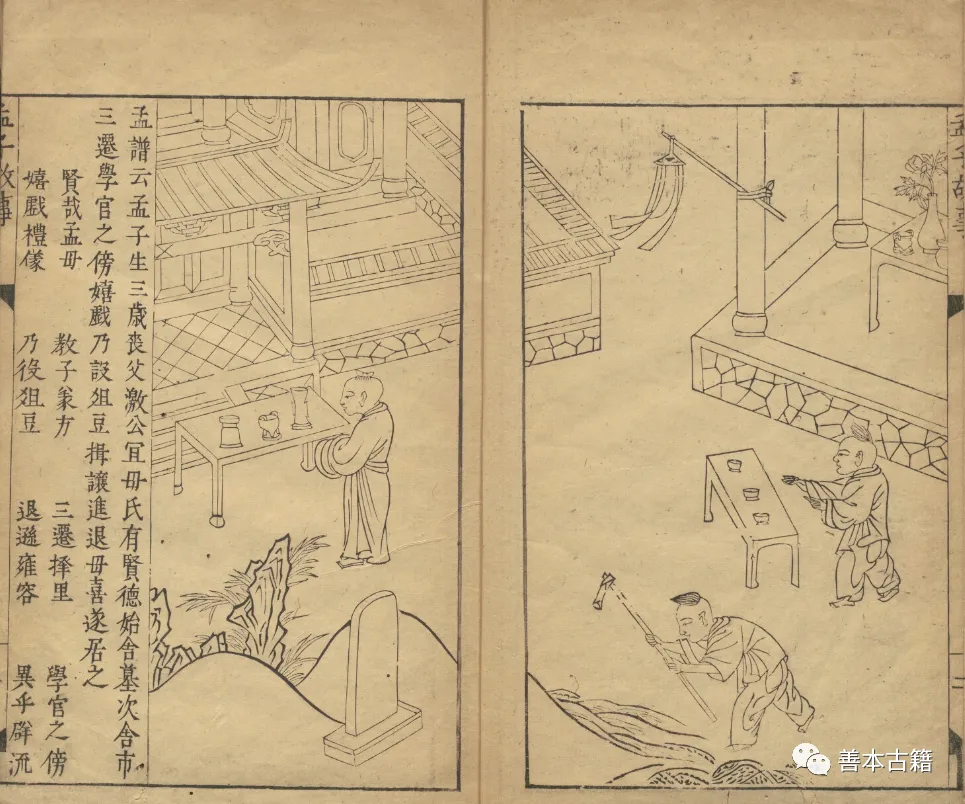 孟子故事
孟譜云孟子生三歲喪父激公宜毋氏有賢德始舍墓次舍市
三遷學官之傍嬉戲乃設俎豆揖讓進退毋喜遂居之
賢哉孟毋 教子 方 三遷擇里 學官之傍
嬉戲禮儀 乃設俎豆 退遜雍容 異乎辟流
孟子故事
善本古籍